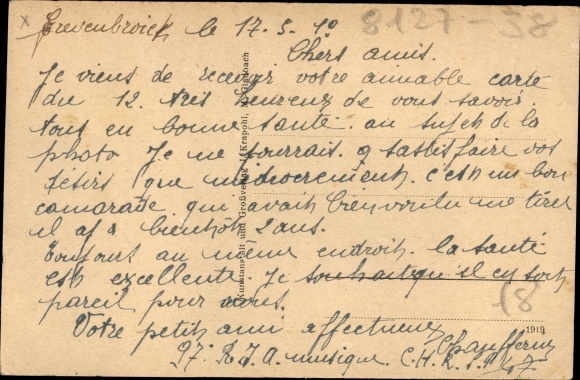 Grevenbroich le 17. 5. 19
8127-38
Chers amis.
Je viens de recevoir votre aimable carte
du 12. très heureux de vous savoir
tous en bonne santé. au sujet de la
photo Je ne pourrais y satisfaire vos
désirs que médiocrement. c'est un bon
camarade qui avait bien voulu me tirer
il y a bientôt 2 ans.
Toujours au même endroit. la santé
est excellente. Je souhait qu'il en soit
pareil pour vous.
Votre petit ami affectueux
27e R.I.A. musique.
Kunstanstalt und Großverlag W. Krapohl, M.Gladbach
1919
18